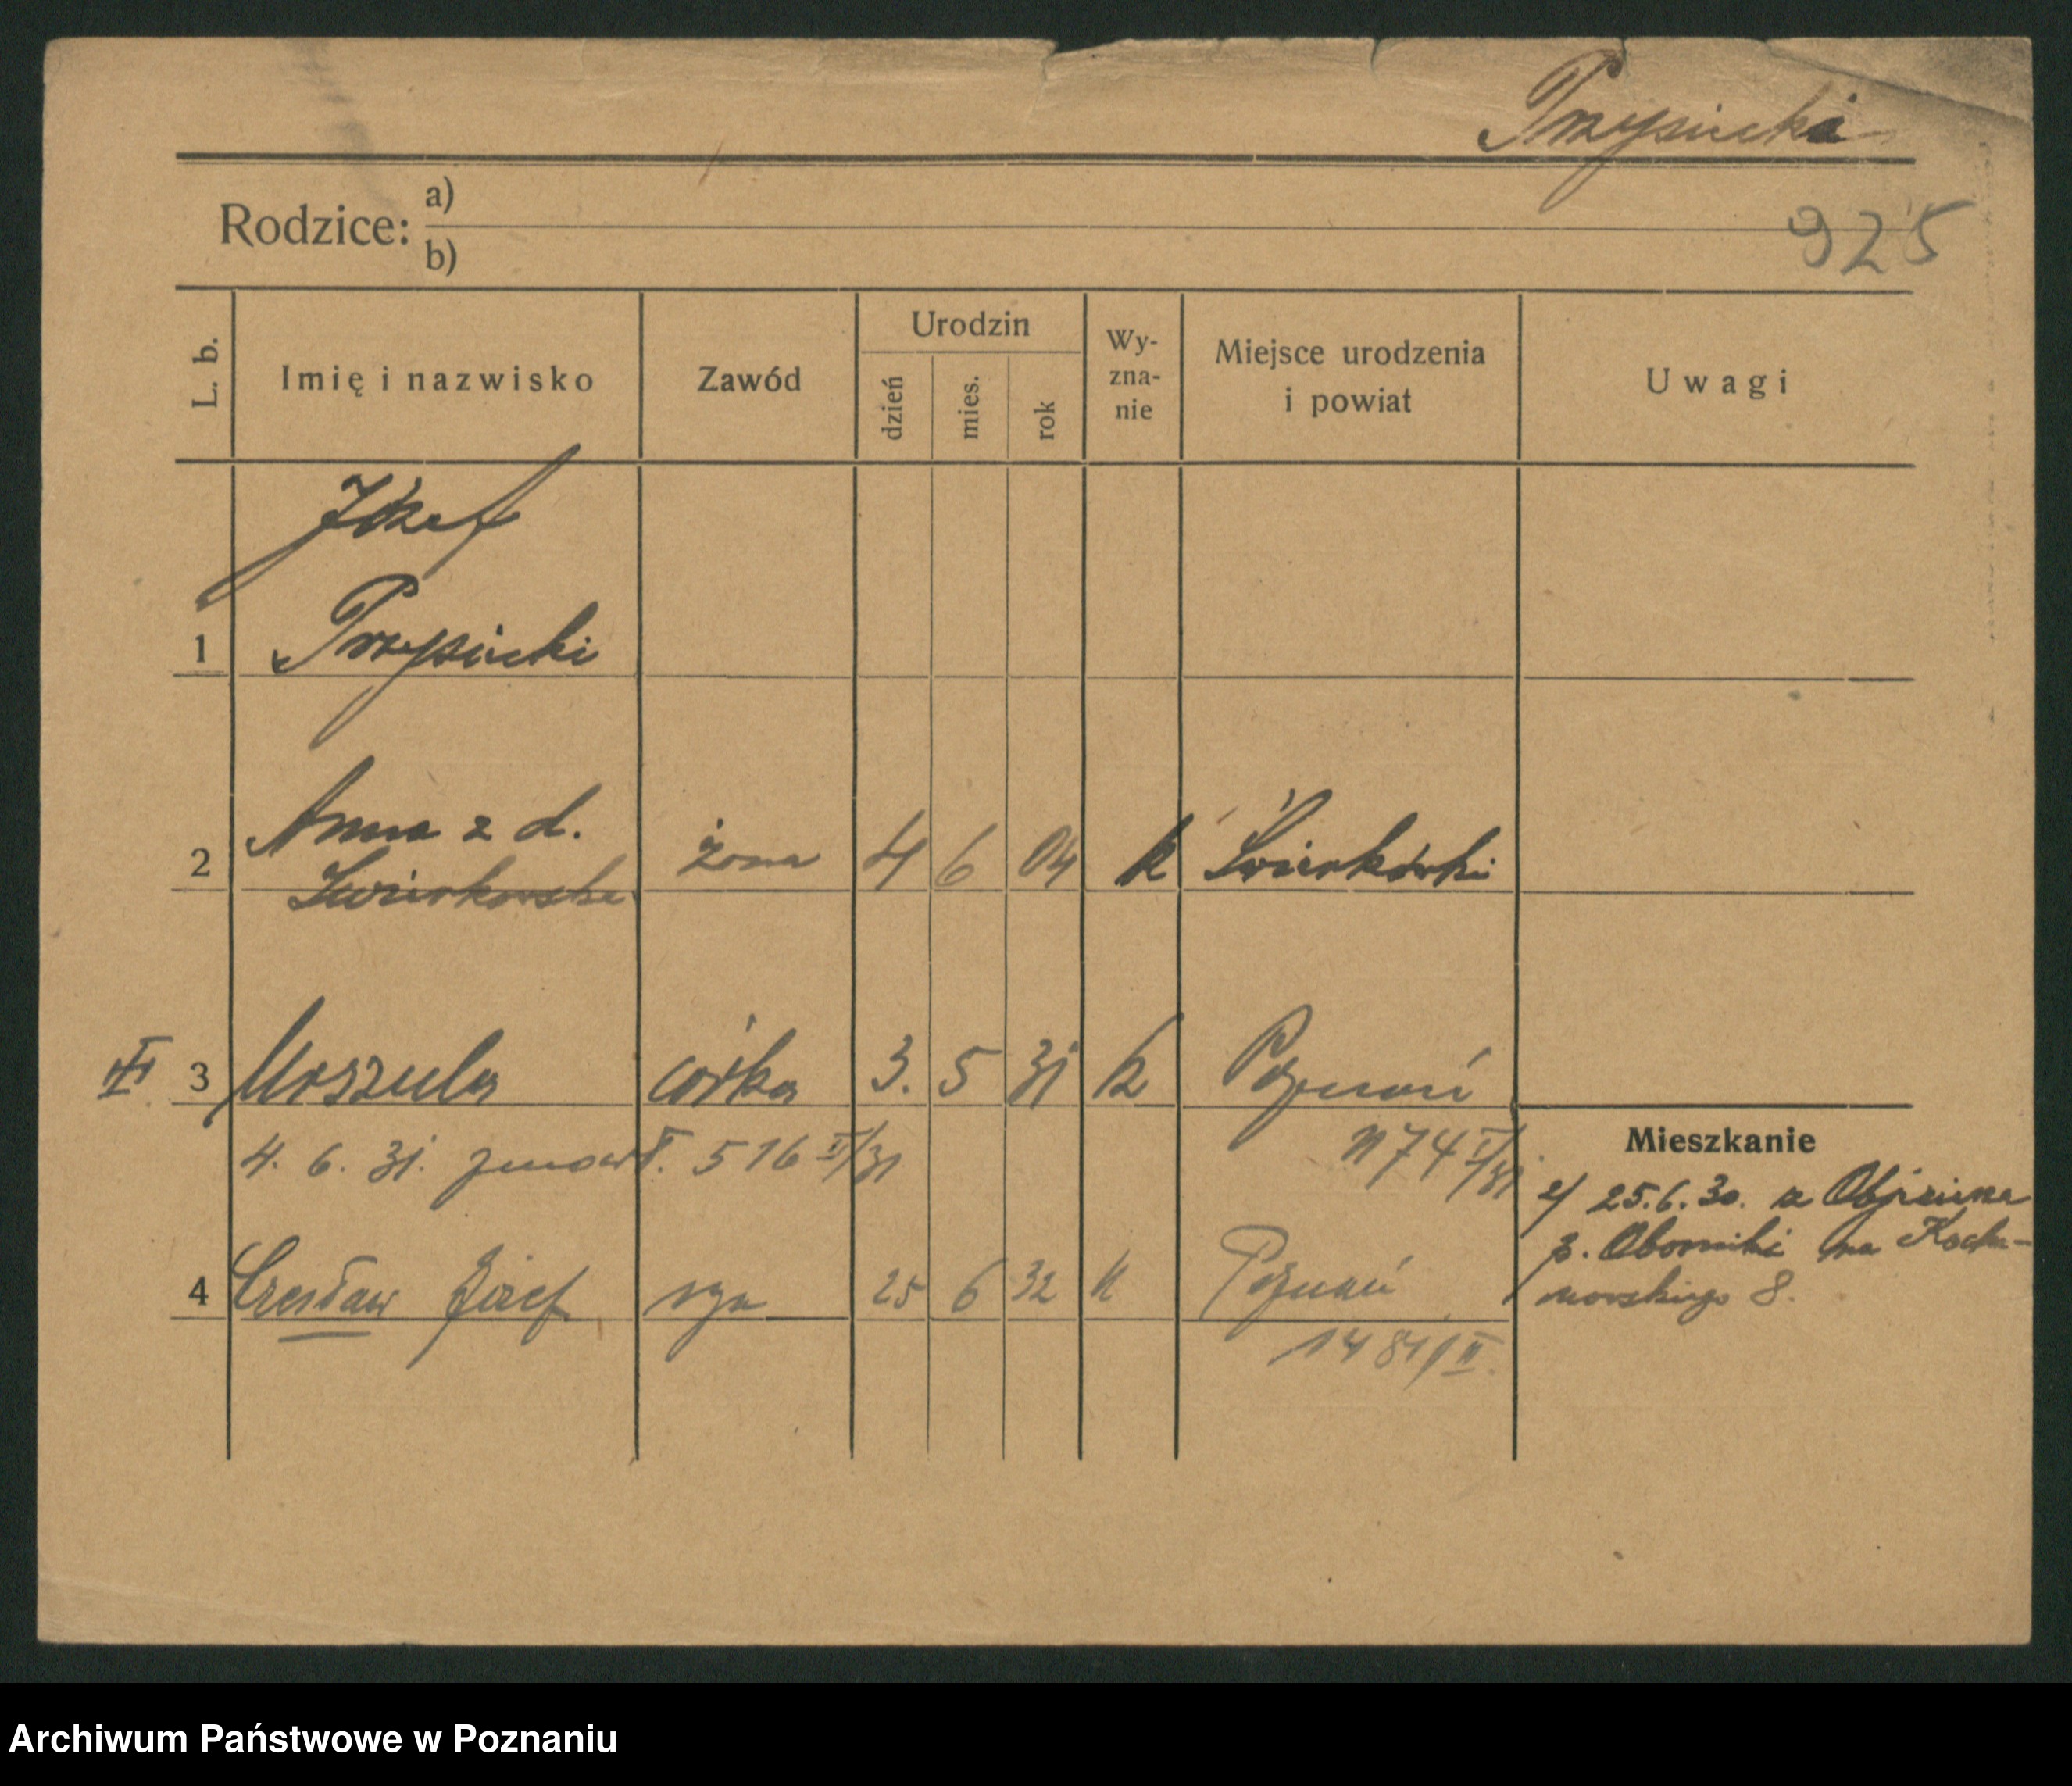 Przysiecki
925
Rodzice: a)
b)
L. b. Imię i nazwisko Zawód Urodzin dzień mies. rok Wy-zna-nie Miejsce urodzenia i powiat Uwagi
Józef
1 Przysiecki
Anna z d.
2 żona 4 6 04 k
3 Urszula córka 3. 5 31 k Poznań
4. 6. 31. 516 II/31
Mieszkanie
25.6.30. z
p. Oborniki na Kocha-
nowskiego 8.
4 Czesław Józef syn 25 6 32 k Poznań
1481/II.
Archiwum Państwowe w Poznaniu